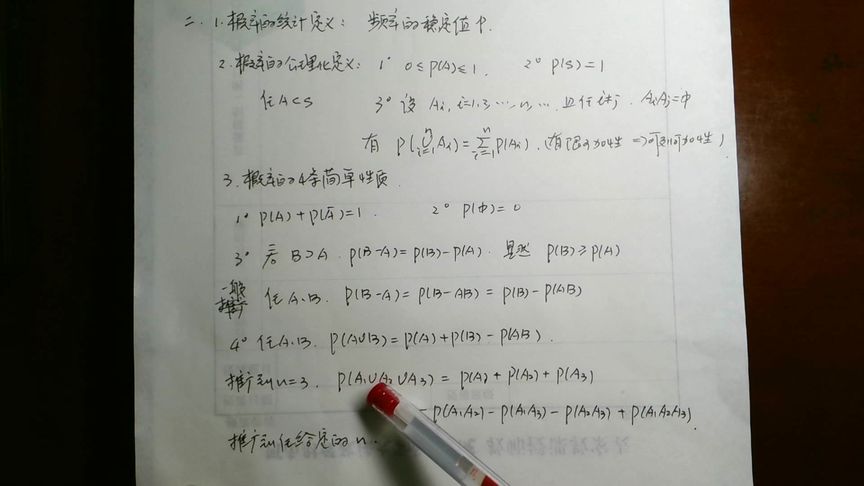 二. 1. 概率的统计定义: 频率的稳定值 P.
2. 概率的公理化定义: 1° 0≤P(A)≤1. 2° P(S)=1
任A⊂S 3° 设 Ai, i=1,3…,n,… 且任i≠j. AiAj=φ
有 P(⋃_{i=1}^{n}Ai)=∑_{i=1}^{n}P(Ai). (有限可加性 ⇒ 可列可加性)
3. 概率的4条简单性质.
1° P(A)+P(Ā)=1. 2° P(φ)=0
3° 若 B⊃A. P(B-A)=P(B)-P(A). 显然 P(B)≥P(A)
一般推广 任A.B. P(B-A)=P(B-AB)=P(B)-P(AB)
4° 任A.B. P(A∪B)=P(A)+P(B)-P(AB).
推广到n=3. P(A₁∪A₂∪A₃)=P(A)+P(A₂)+P(A₃)
-P(A₁A₂)-P(A₁A₃)-P(A₂A₃)+P(A₁A₂A₃).
推广到任给定的n.